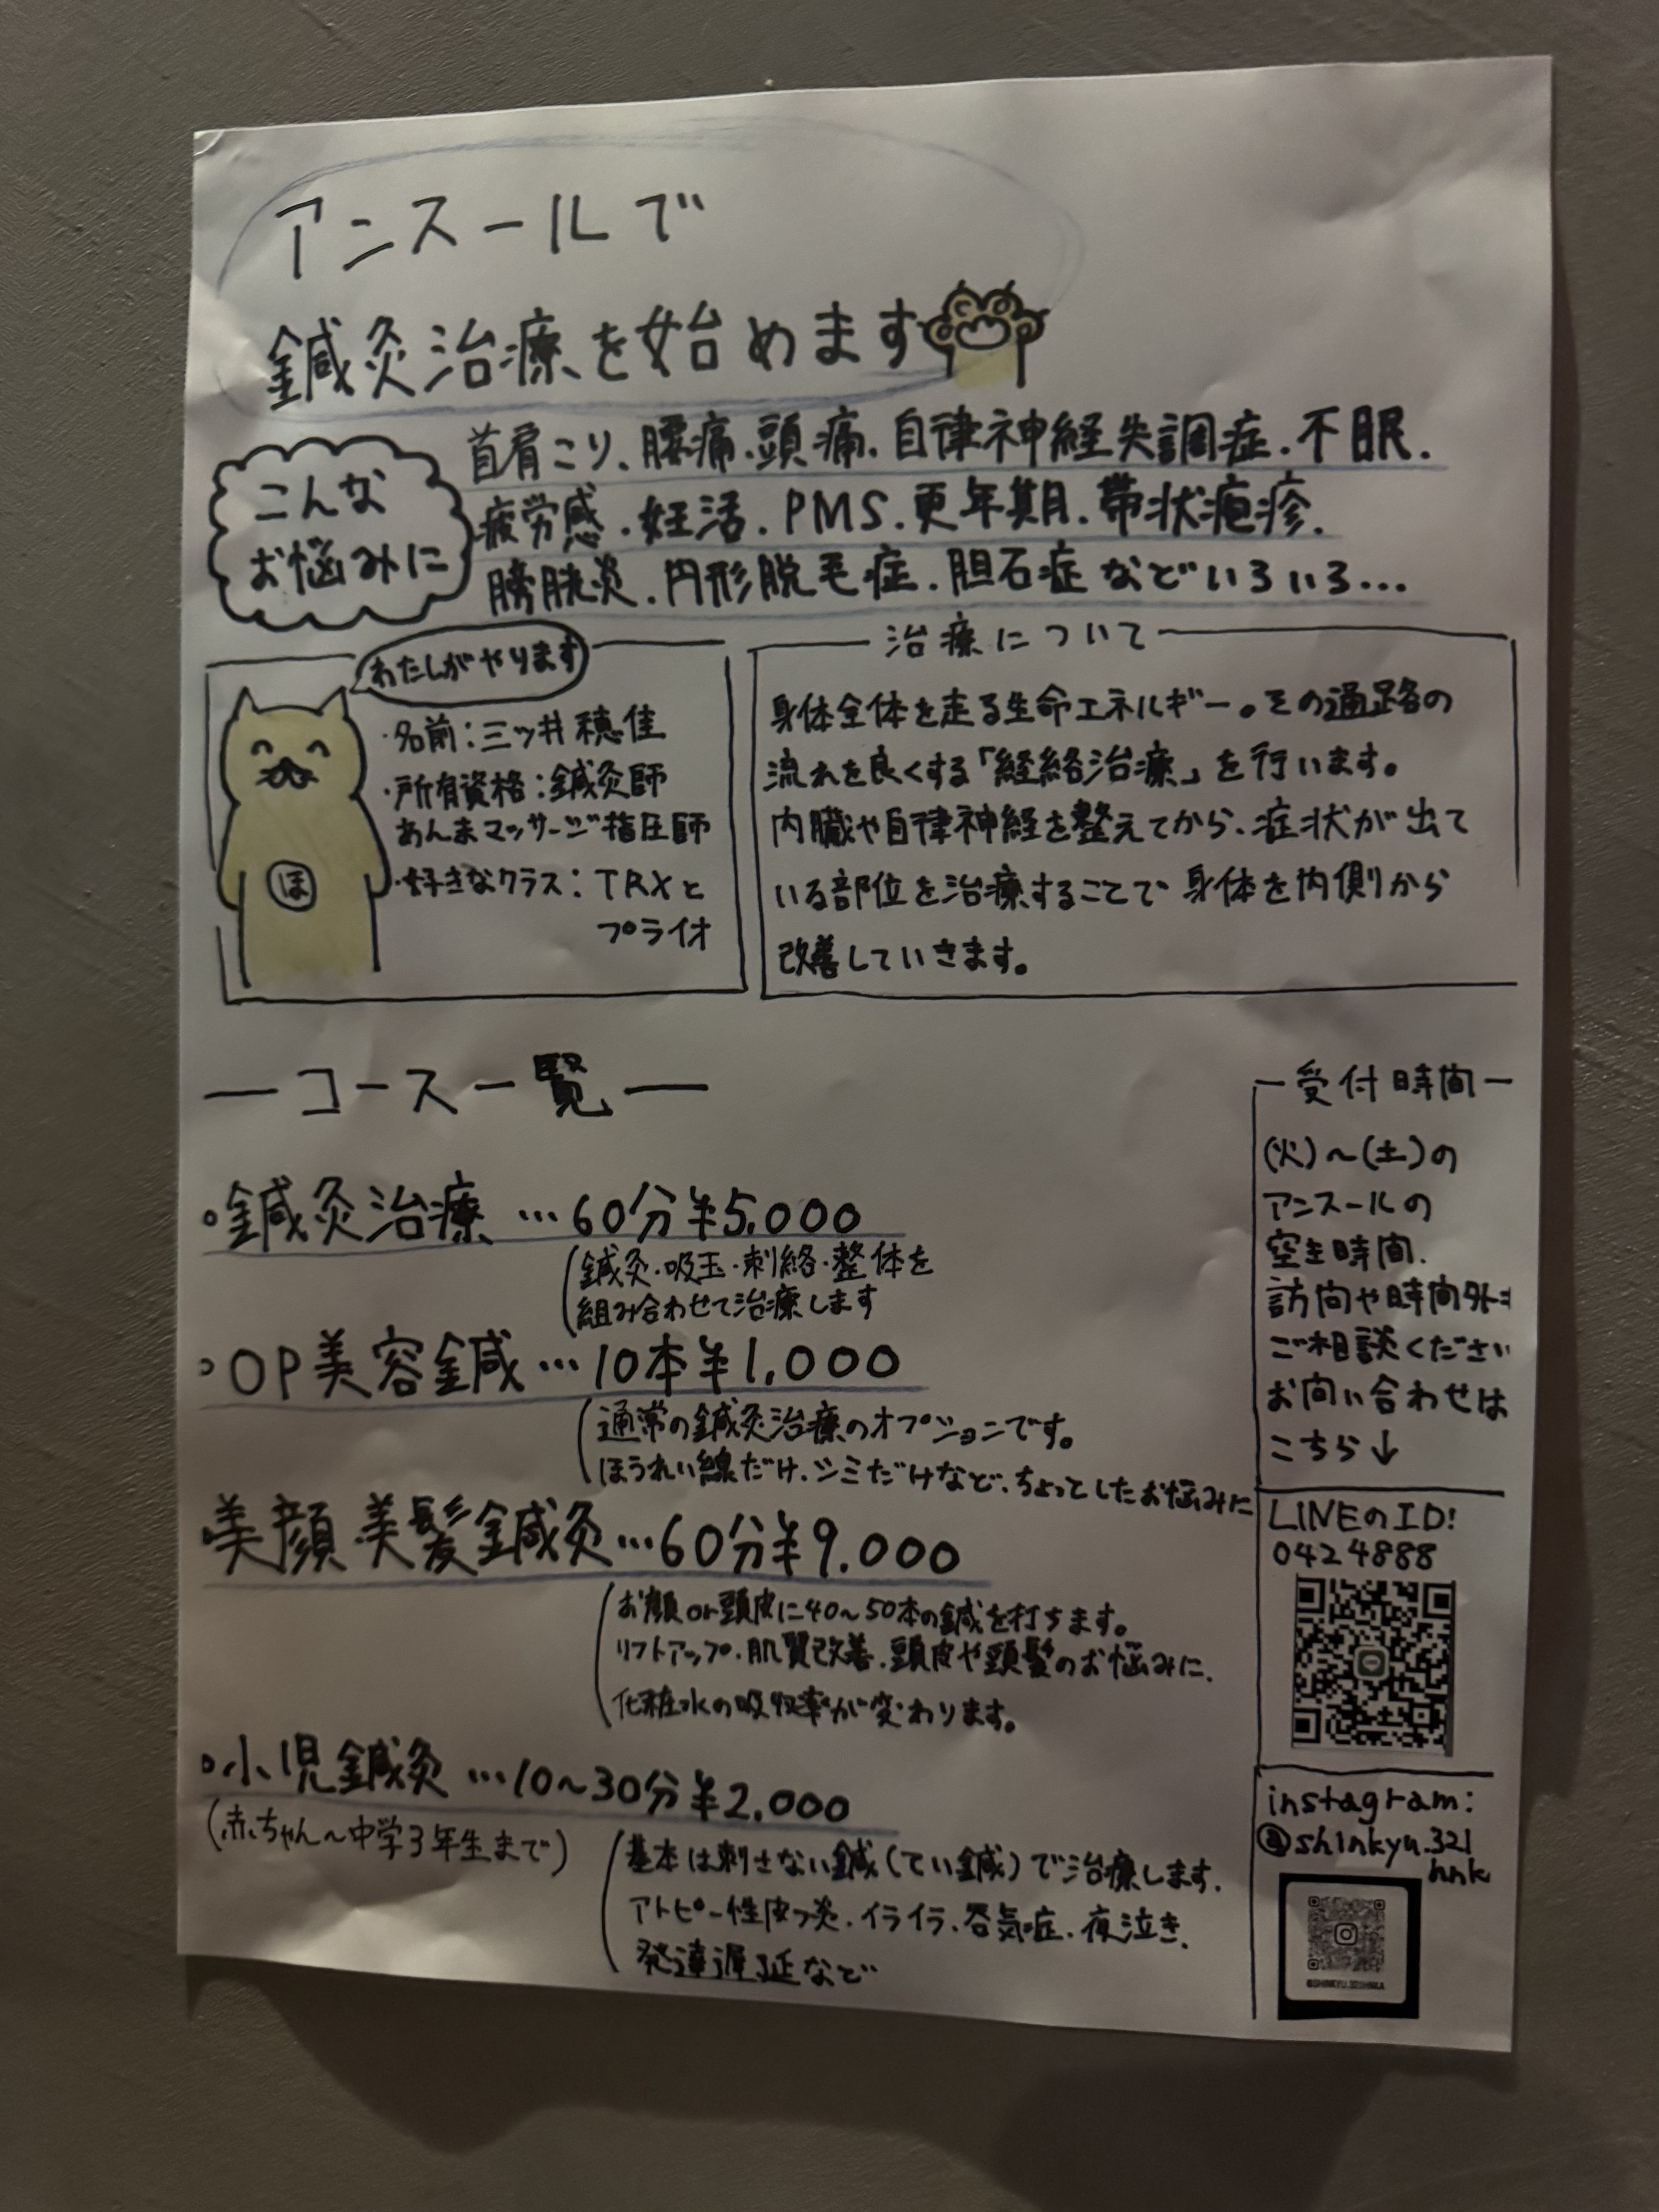 アンスールで
鍼灸治療を始めます
こんな
お悩みに
首肩こり、腰痛、頭痛、自律神経失調症、不眠、
疲労感、妊活、PMS、更年期、帯状疱疹、
膀胱炎、円形脱毛症、胆石症などいろいろ…
わたしがやります
・名前：三ッ井 穂佳
・所有資格：鍼灸師
あんまマッサージ指圧師
・好きなクラス：TRXと
プライオ
ほ
治療について
身体全体を走る生命エネルギー。その通路の
流れを良くする「経絡治療」を行います。
内臓や自律神経を整えてから、症状が出て
いる部位を治療することで身体を内側から
改善していきます。
ーコース一覧ー
・鍼灸治療 …60分¥5,000
(鍼灸・吸玉・刺絡・整体を
組み合わせて治療します
・OP美容鍼…10本¥1,000
(通常の鍼灸治療のオプションです。
ほうれい線だけ、シミだけなど、ちょっとしたお悩みに
美顔 美髪鍼灸…60分¥9,000
(お顔or頭皮に40〜50本の鍼を打ちます。
リフトアップ、肌質改善、頭皮や頭髪のお悩みに、
化粧水の吸収率が変わります。
・小児鍼灸 …10〜30分¥2,000
(赤ちゃん〜中学3年生まで)
(基本は刺さない鍼(てい鍼)で治療します、
アトピー性皮フ炎、イライラ、呑気症、夜泣き、
発達遅延など
ー受付時間ー
(火)〜(土)の
アンスールの
空き時間、
訪問や時間外
ご相談ください
お問い合わせは
こちら↓
LINEのID!
0424888
instagram:
@shinkyu.321
hnk